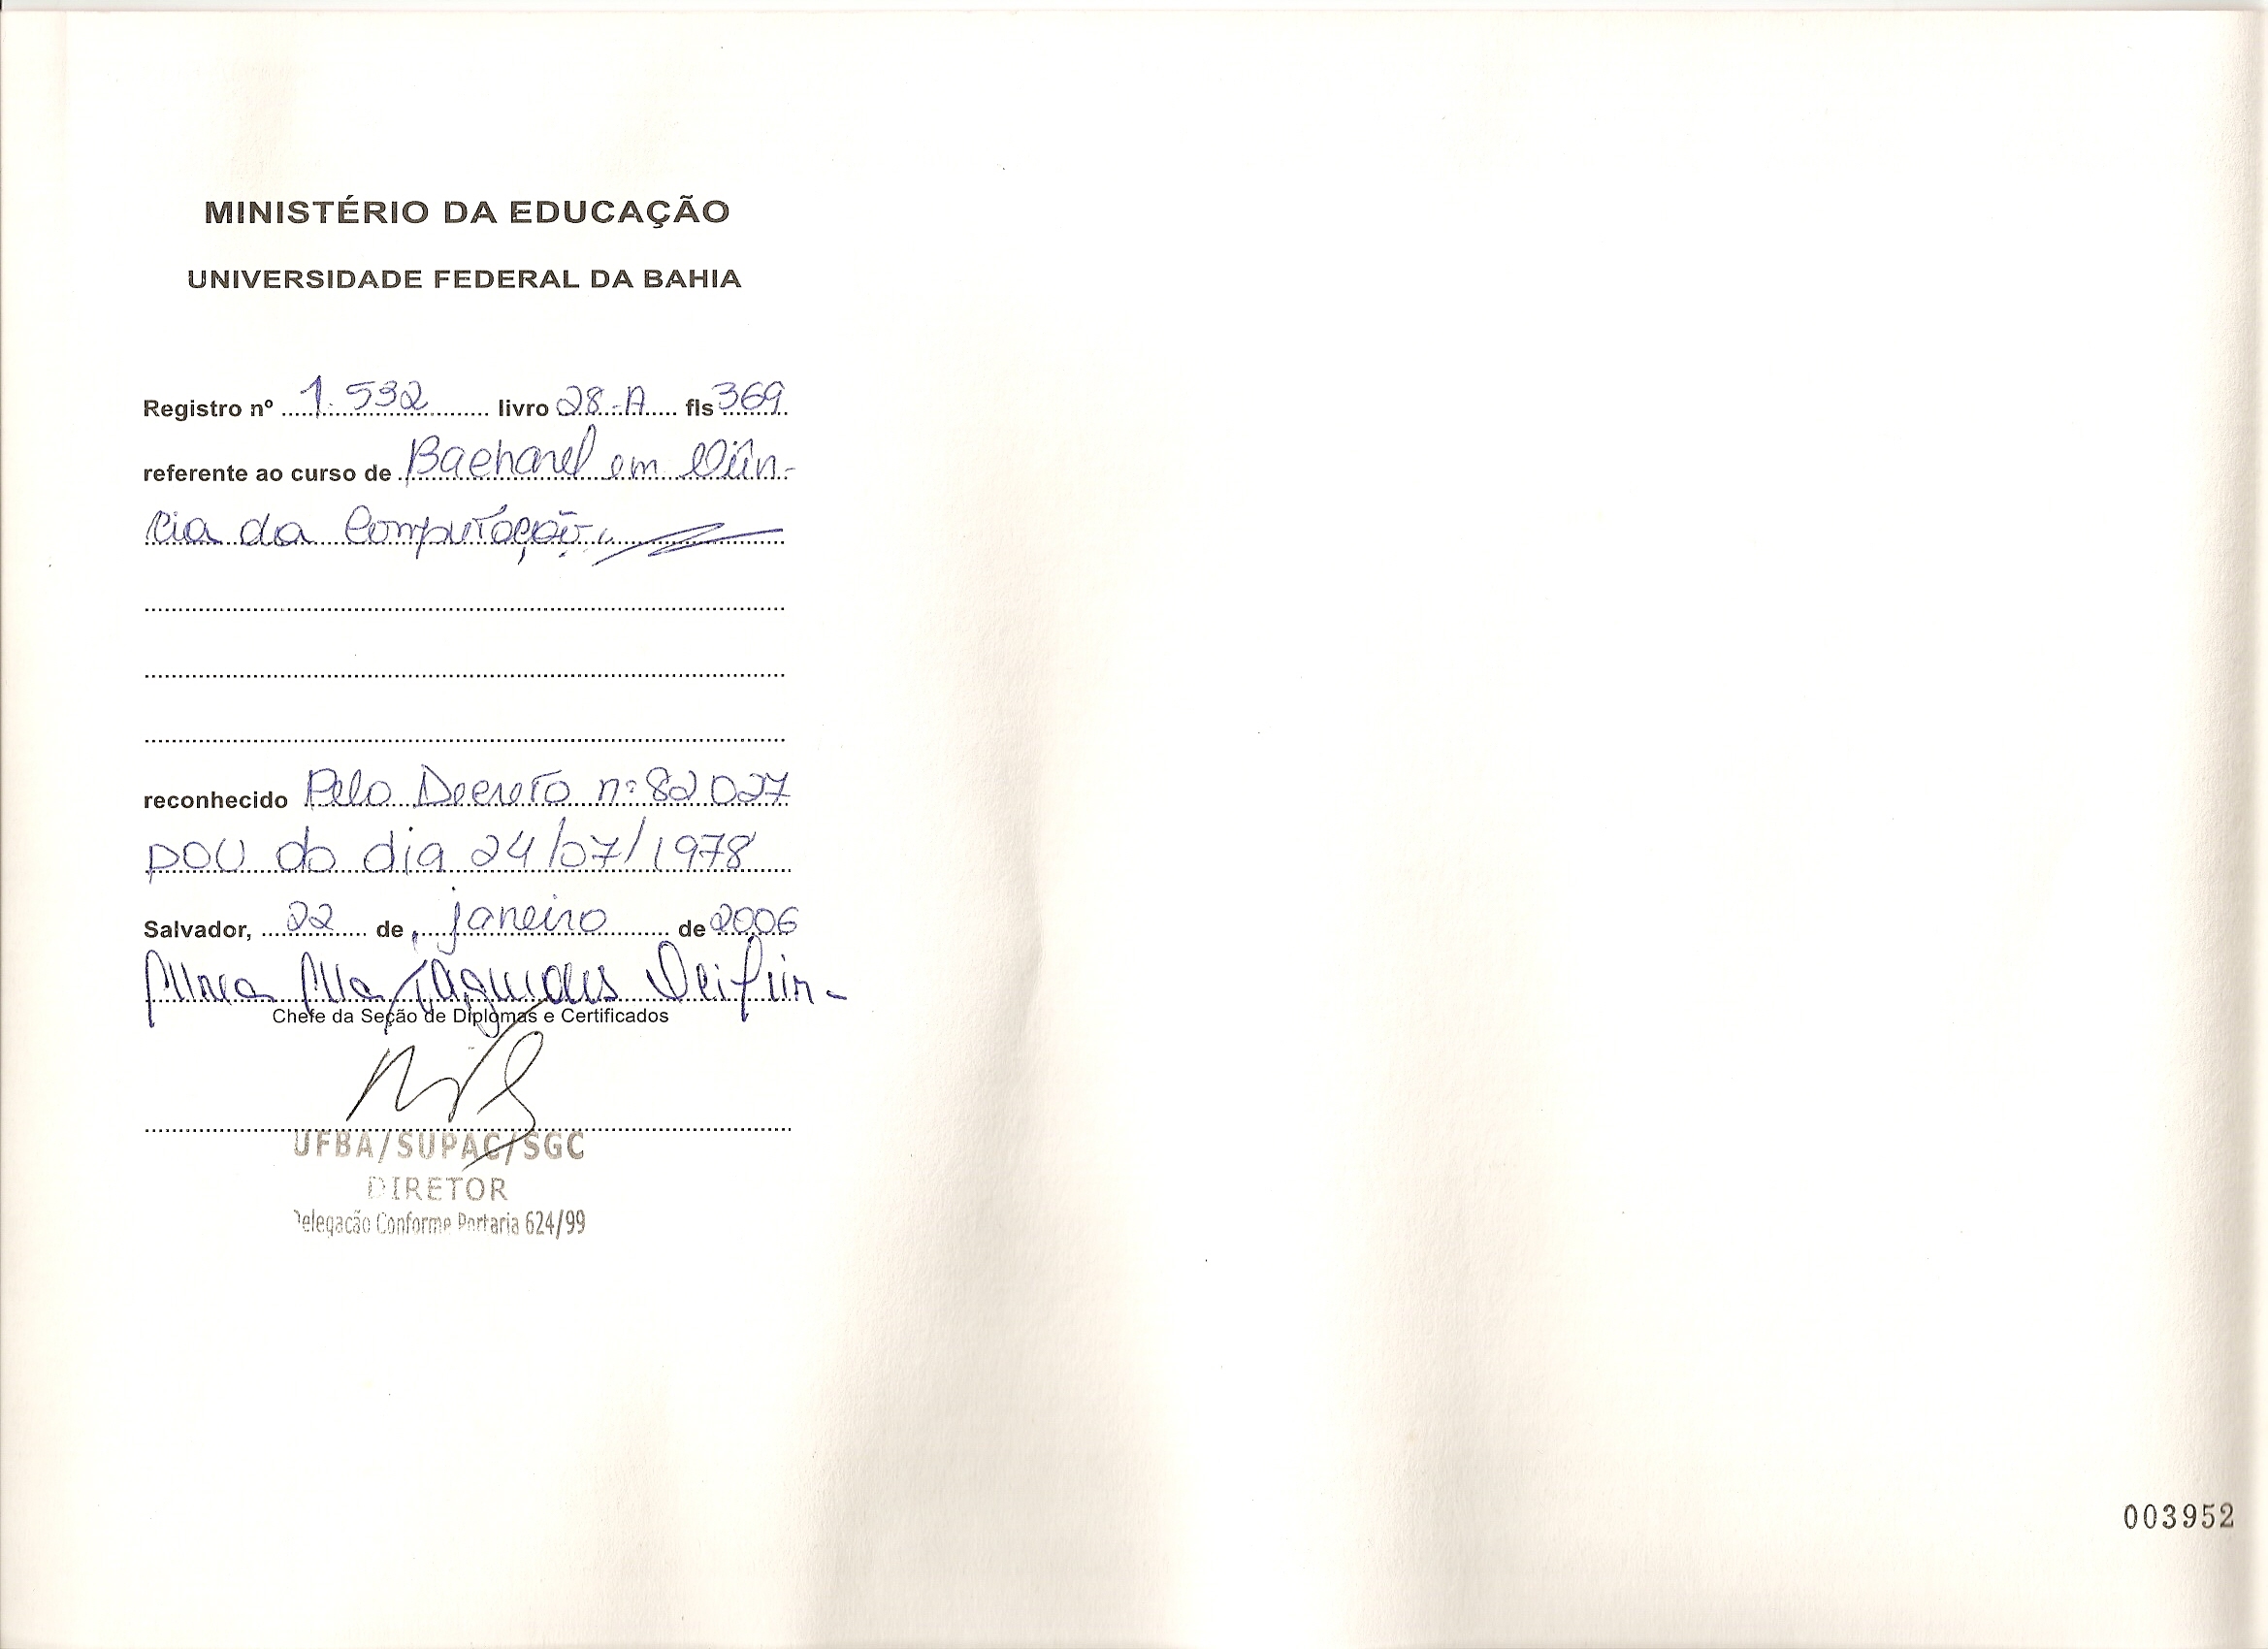 MINISTÉRIO DA EDUCAÇÃO
UNIVERSIDADE FEDERAL DA BAHIA
Registro nº 1.532 livro 28-A fls 369
referente ao curso de Bacharel em Ciên-
cia da Computação
reconhecido Pelo Decreto nº 82027
DOU do dia 24/07/1978
Salvador, 22 de janeiro de 2006
Chefe da Seção de Diplomas e Certificados
UFBA/SUPAC/SGC
DIRETOR
Delegacão Conforme Portaria 624/99
003952